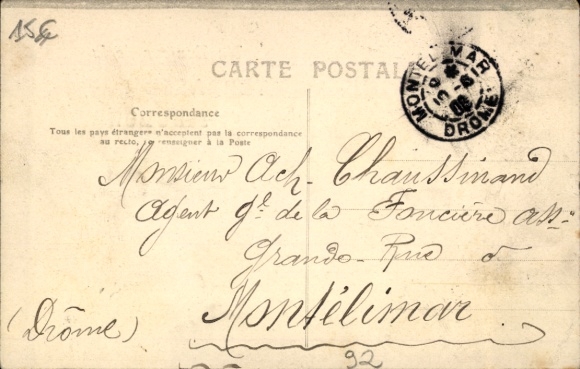 15€
CARTE POSTALE
MONTELIMAR
DRÔME
Correspondance
Tous les pays étrangers n'acceptent pas la correspondance
au recto, se renseigner à la Poste
Monsieur Ach. Chaussinand
Agent gl. de la Foncière ass.
Grande-Rue à
Montélimar
(Drôme)
92